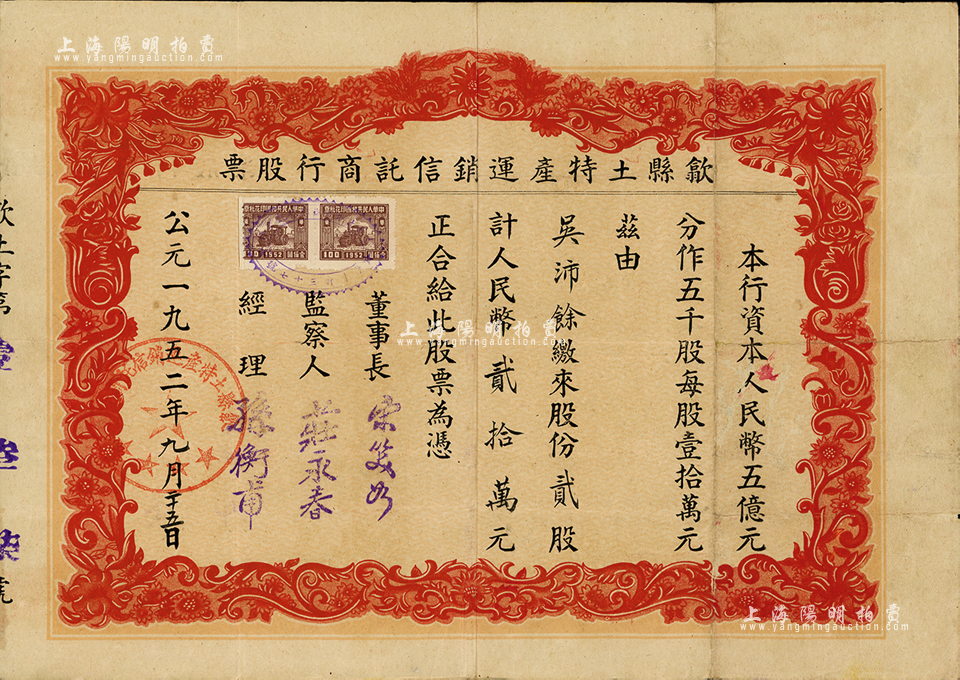 上海陽明拍賣
www.yangmingauction.com
歙縣土特產運銷信託商行股票
本行資本人民幣五億元
分作五千股每股壹拾萬元
茲由
吳沛餘繳來股份貳股
計人民幣貳拾萬元
正合給此股票為憑
董事長
監察人 莊永春
經理 孫衡甫
公元一九五二年九月廿五日
中華人民共和國印花稅票
100
1952
中華人民共和國印花稅票
1952
歙土字第壹
號
上海陽明拍賣
www.yangmingauction.com
上海陽明拍賣
www.yangmingauction.com